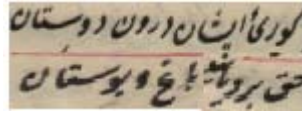 کوریٔ ایشان درون دوستان
حق برویانید باغ و بوستان